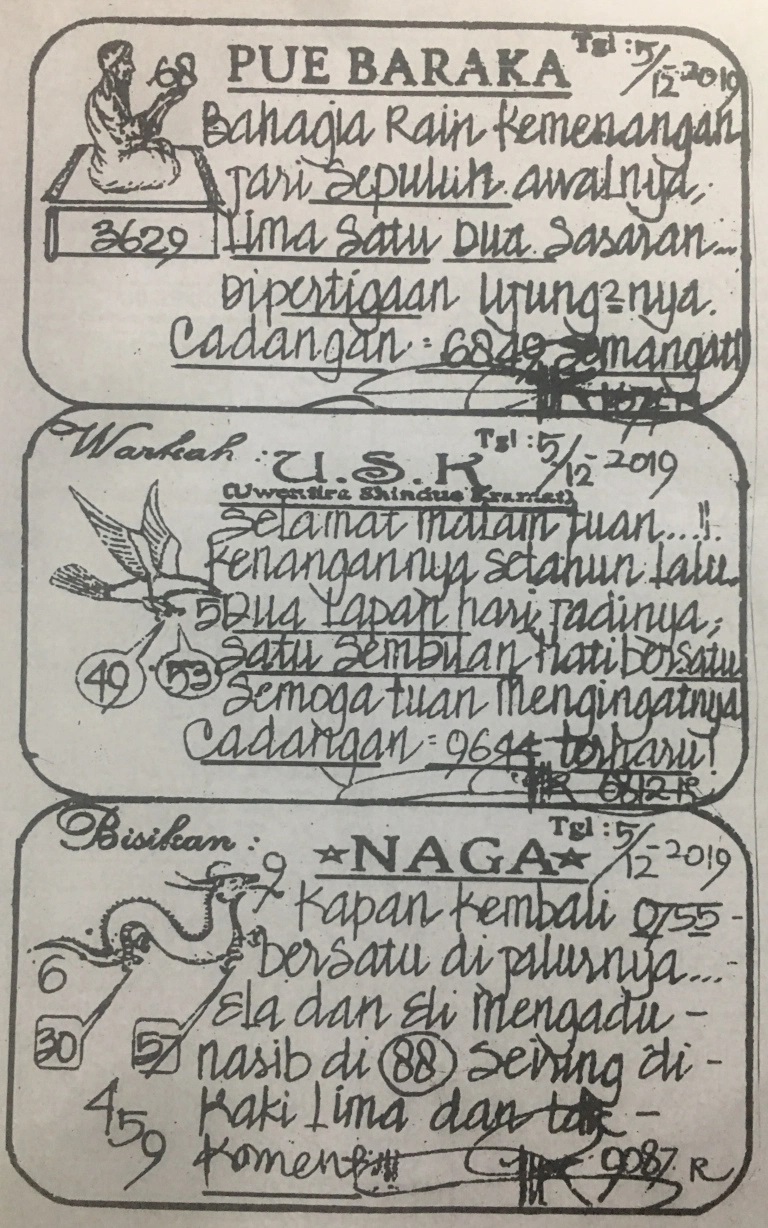 PUE BARAKA Tgl : 5/12-2019
68
Bahagia Rain Kemenangan
Jari Sepuluh awalnya,
3629 Lima Satu Dua Sasaran...
Dipertigaan Ujung2nya.
Cadangan : 6849 Semangat!
Warkah : U.S.K Tgl : 5/12-2019
(Uwentira Shindue Kramat)
Selamat malam Tuan...!!.
Kenangannya setahun Lalu.
5 Dua Lapan hari jadinya,
49 53 Satu Sembilan Hati bersatu
Semoga tuan Mengingatnya
Cadangan : 9644 terharu!
6812 R
Bisikan : Tgl : 5/12-2019
☆NAGA☆
9 Kapan Kembali 0755-
bersatu di jalurnya...-
6 Ela dan Eli Mengadu -
30 57 nasib di 88 Seiring di -
459 Kaki Lima dan tak -
Komen
9087 R